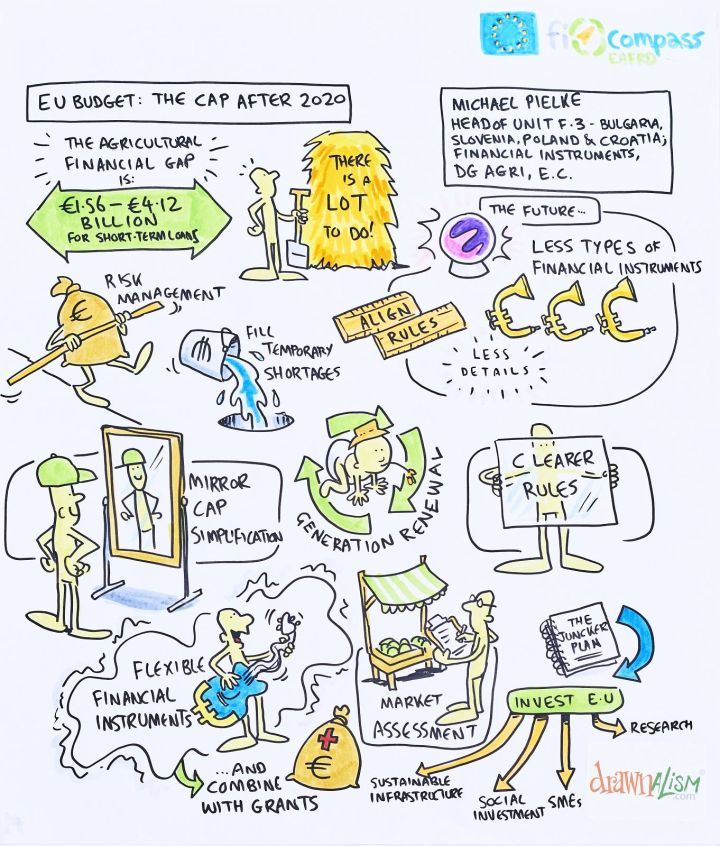 fi compass
EAFRD
EU BUDGET: THE CAP AFTER 2020
MICHAEL PIELKE
HEAD OF UNIT F.3 - BULGARIA,
SLOVENIA, POLAND & CROATIA;
FINANCIAL INSTRUMENTS,
DG AGRI, E.C.
THE AGRICULTURAL
FINANCIAL GAP
IS:
€1.56 - €4.12
BILLION
FOR SHORT-TERM LOANS
THERE
IS A
LOT
TO DO!
THE FUTURE...
LESS TYPES OF
FINANCIAL INSTRUMENTS
ALIGN
RULES
LESS
DETAILS
RISK
MANAGEMENT
€
FILL
TEMPORARY
SHORTAGES
MIRROR
CAP
SIMPLIFICATION
GENERATION RENEWAL
CLEARER
RULES
FLEXIBLE
FINANCIAL
INSTRUMENTS
...AND
COMBINE
WITH GRANTS
€
MARKET
ASSESSMENT
THE
JUNCKER
PLAN
INVEST E.U
RESEARCH
SUSTAINABLE
INFRASTRUCTURE
SOCIAL
INVESTMENT
SMEs
drawnalism
.com